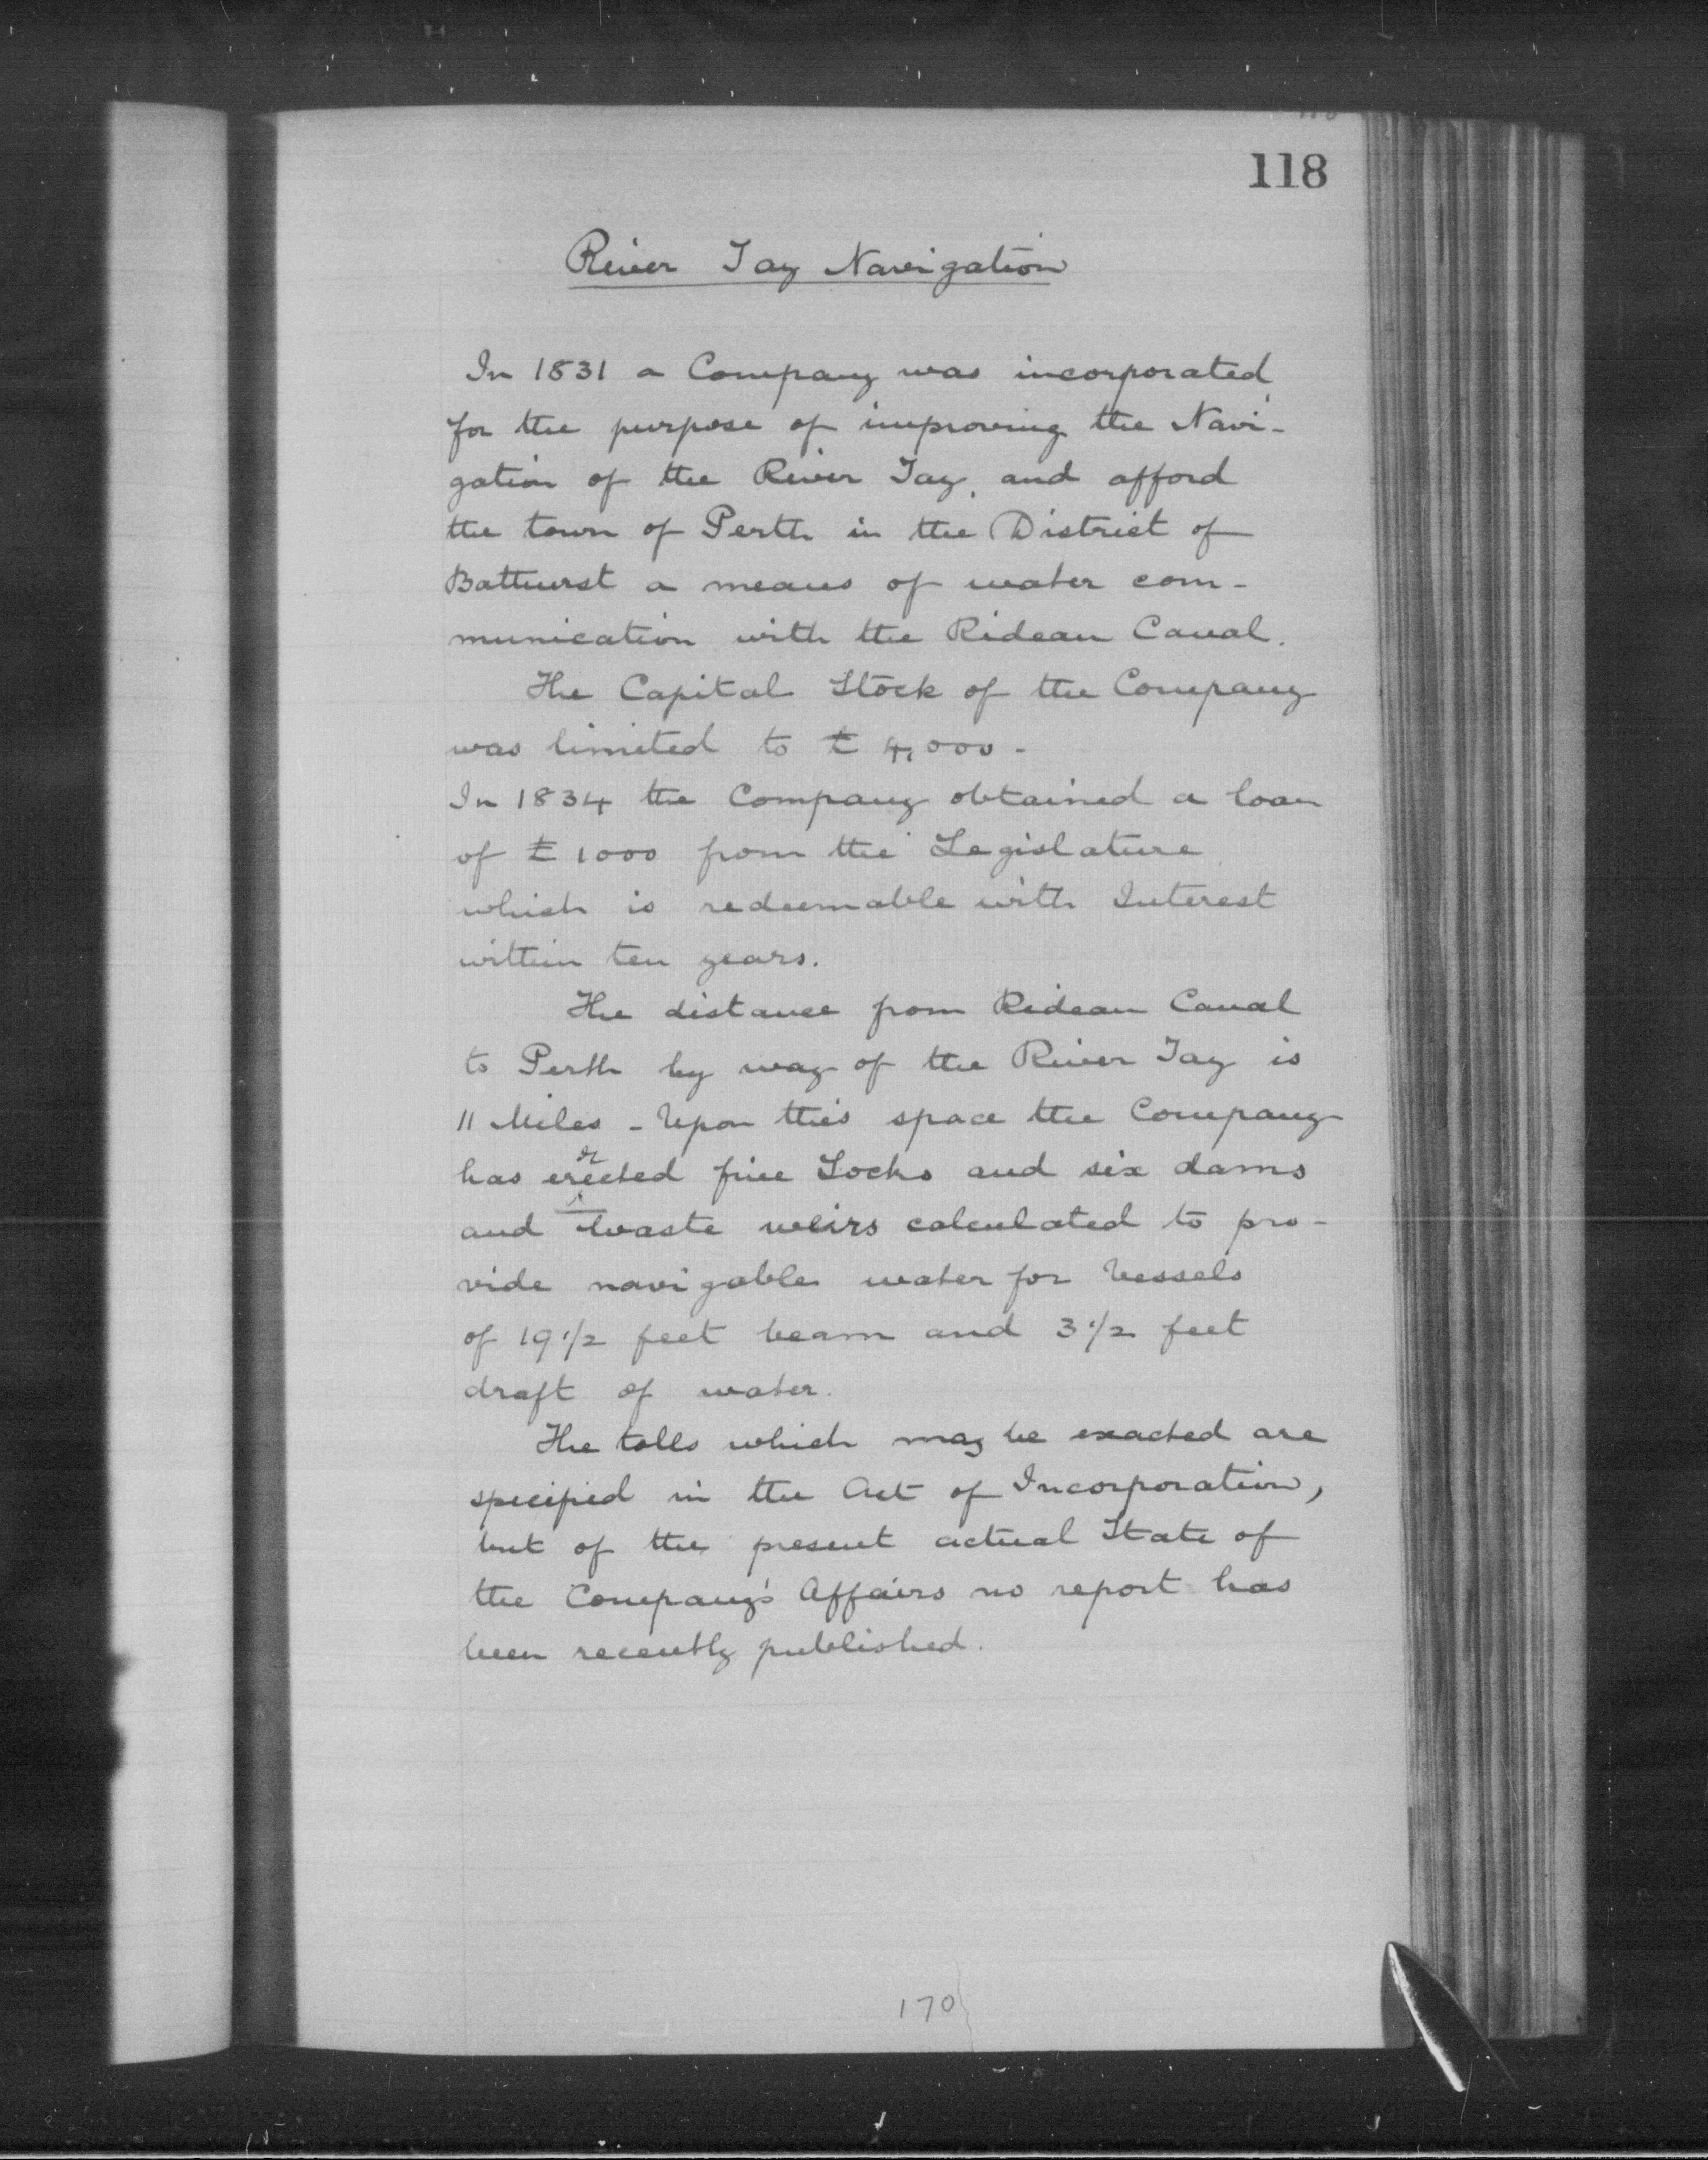 118
River Tay Navigation
In 1831 a Company was incorporated
for the purpose of improving the Navi-
gation of the River Tay, and afford
the town of Perth in the District of
Bathurst a means of water com-
munication with the Rideau Canal.
The Capital Stock of the Company
was limited to £ 4,000 -
In 1834 the Company obtained a loan
of £ 1000 from the Legislature
which is redeemable with Interest
within ten years.
The distance from Rideau Canal
to Perth by way of the River Tay is
11 Miles - Upon this space the Company
has erected five Locks and six dams
and Waste weirs calculated to pro-
vide navigable water for Vessels
of 19 1/2 feet beam and 3 1/2 feet
draft of water.
The tolls which may be exacted are
specified in the Act of Incorporation,
but of the present actual State of
the Company's Affairs no report has
been recently published.
170